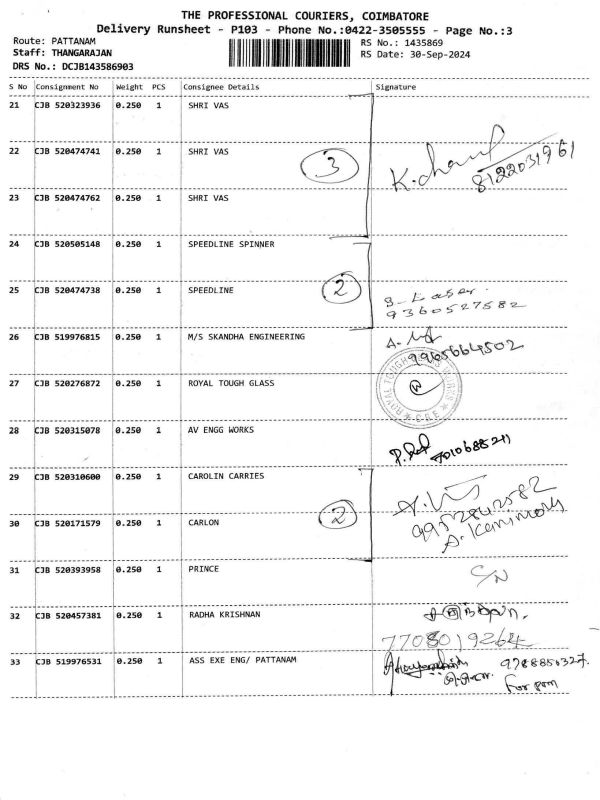 THE PROFESSIONAL COURIERS, COIMBATORE
Delivery Runsheet - P103 - Phone No.:0422-3505555 - Page No.:3
Route: PATTANAM RS No.: 1435869
Staff: THANGARAJAN RS Date: 30-Sep-2024
DRS No.: DCJB143586903
S No Consignment No Weight PCS Consignee Details Signature
21 CJB 520323936 0.250 1 SHRI VAS
22 CJB 520474741 0.250 1 SHRI VAS
3
8122031961
23 CJB 520474762 0.250 1 SHRI VAS
24 CJB 520505148 0.250 1 SPEEDLINE SPINNER
25 CJB 520474738 0.250 1 SPEEDLINE 2
9360527582
26 CJB 519976815 0.250 1 M/S SKANDHA ENGINEERING
9965664502
27 CJB 520276872 0.250 1 ROYAL TOUGH GLASS
ROYAL TOUGH
CBE
28 CJB 520315078 0.250 1 AV ENGG WORKS
29 CJB 520310600 0.250 1 CAROLIN CARRIES
9952842582
30 CJB 520171579 0.250 1 CARLON 2
31 CJB 520393958 0.250 1 PRINCE
C/N
32 CJB 520457381 0.250 1 RADHA KRISHNAN
7708019264
33 CJB 519976531 0.250 1 ASS EXE ENG/ PATTANAM